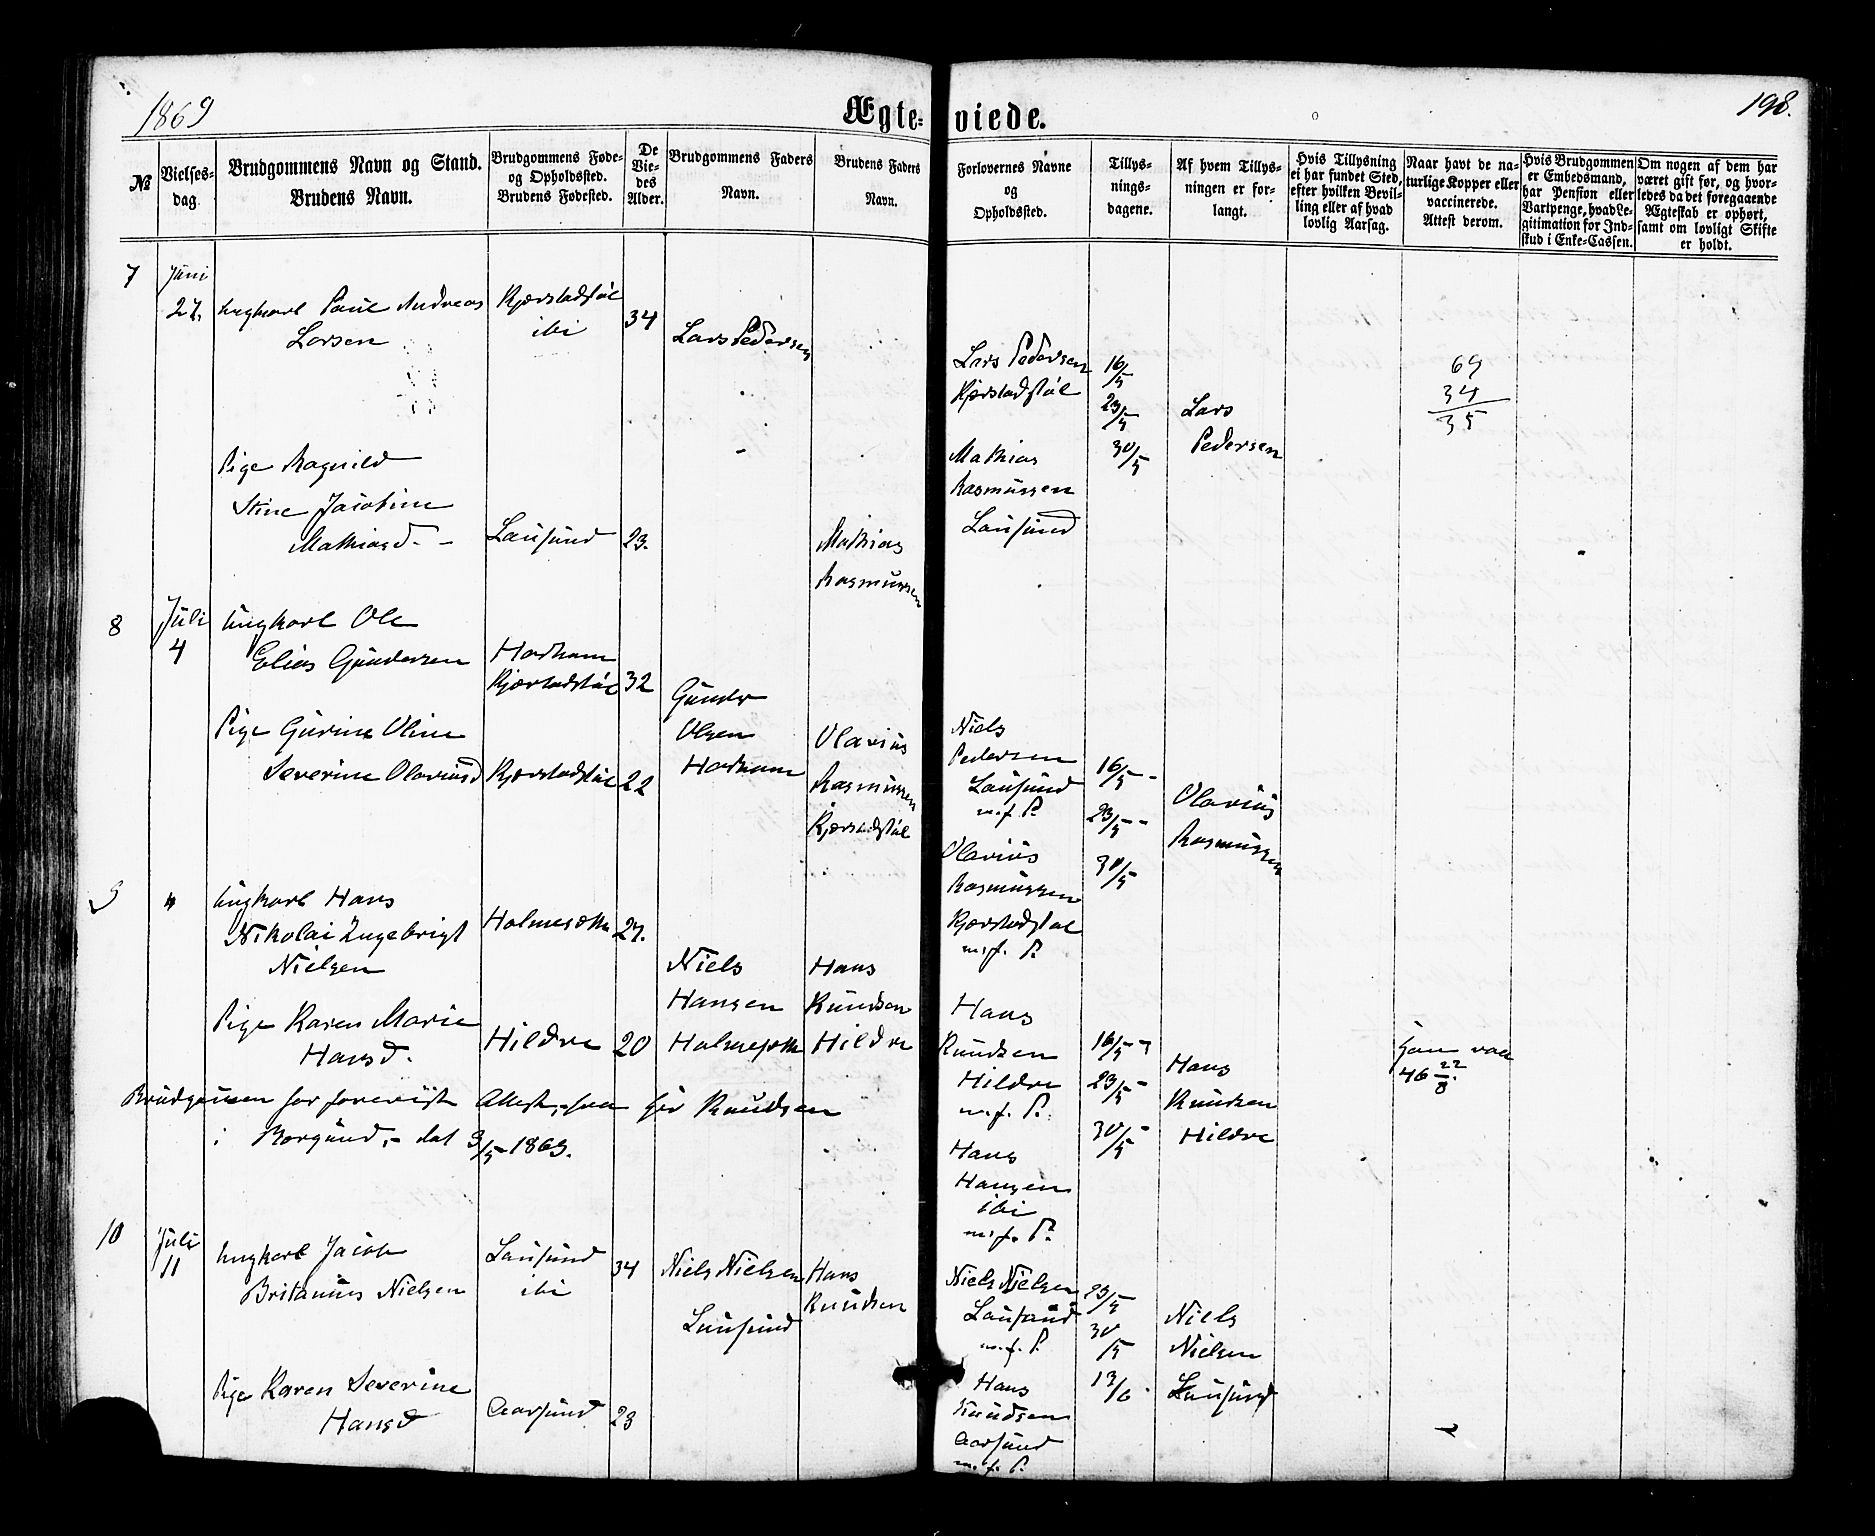 1869
Ægte- viede.
198.
№
Vielses-
dag.
Brudgommens Navn og Stand.
Brudens Navn.
Brudgommens Føde-
og Opholdssted.
Brudens Fødested.
De
Vie-
des
Alder.
Brudgommens Faders
Navn.
Brudens Faders
Navn.
Forlovernes Navne
og
Opholdssted.
Tillys-
nings-
dagene.
Af hvem Tillys-
ningen er for-
langt.
Hvis Tillysning
ei har fundet Sted,
efter hvilken Bevil-
ling eller af hvad
lovlig Aarsag.
Naar havt de na-
turlige Kopper eller
vaccinerede.
Attest derom.
Hvis Brudgommen
er Embedsmand,
har Pension eller
Vartpenge, hvad Le-
gitimation for Ind-
skud i Enke-Cassen.
Om nogen af dem har
været gift før, og hvor-
ledes da det foregaaende
Ægteskab er ophørt,
samt om lovligt Skifte
er holdt.
7
Juni
27.
Ungkarl Paul Andreas
Larsen
Kjærstadstøl
ibi
34
Lars Pedersen
Pige Ragnild
Stine Jacobine
Mathiasd. -
Lausund
23.
Mathias
Rasmussen
Lars Pedersen
Kjærstadstøl
Mathias
Rasmussen
Lausund
16/5
23/5
30/5
Lars
Pedersen
69
34
35
8
Juli
4
Ungkarl Ole
Elias Gundersen
Harham
Kjærstadstøl
32
Gunder
Olsen
Harham
Pige Gurine Oline
Severine Olaviusd
Kjærstadstøl
22
Olavius
Rasmussen
Kjærstadstøl
Niels
Pedersen
Lausund
m.f. P.
Olavius
Rasmussen
Kjærstadstøl
m.f. P.
16/5 -
23/5 -
30/5
Olavius
Rasmussen
9
"
Ungkarl Hans
Nikolai Ingebrigt
Nielsen
27.
Niels
Hansen
Pige Karen Marie
Hansd.
Hildre
20
Hans
Knudsen
Hildre
Brudgommen har foreviist Attest fra Hr Knudsen
i Borgund, - dat 3/5 1869.
Hans
Knudsen
Hildre
m.f. P.
Hans
Hansen
ibi
m.f. P.
16/5 -
23/5 -
30/5 -
Hans
Knudsen
Hildre
46 22/8.
10
Juli
11
Ungkarl Jacob
Britanius Nielsen
Lausund
ibi
34
Niels Nielsen
Lausund
Hans
Knudsen
Pige Karen Severine
Hansd
Aarsund
23
Niels Nielsen
Lausund
m.f. P.
Hans
Knudsen
Aarsund
m.f. P.
23/5
30/5
13/6
Niels
Nielsen
Lausund